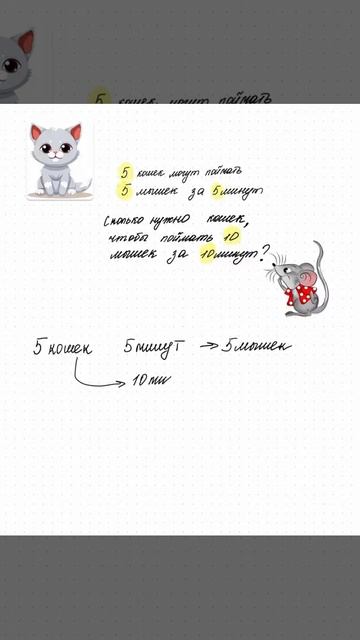 5 кошек могут поймать
5 кошек могут поймать
5 мышек за 5 минут
Сколько нужно кошек,
чтобы поймать 10
мышек за 10 минут?
5 кошек 5 минут → 5 мышек
10 ми